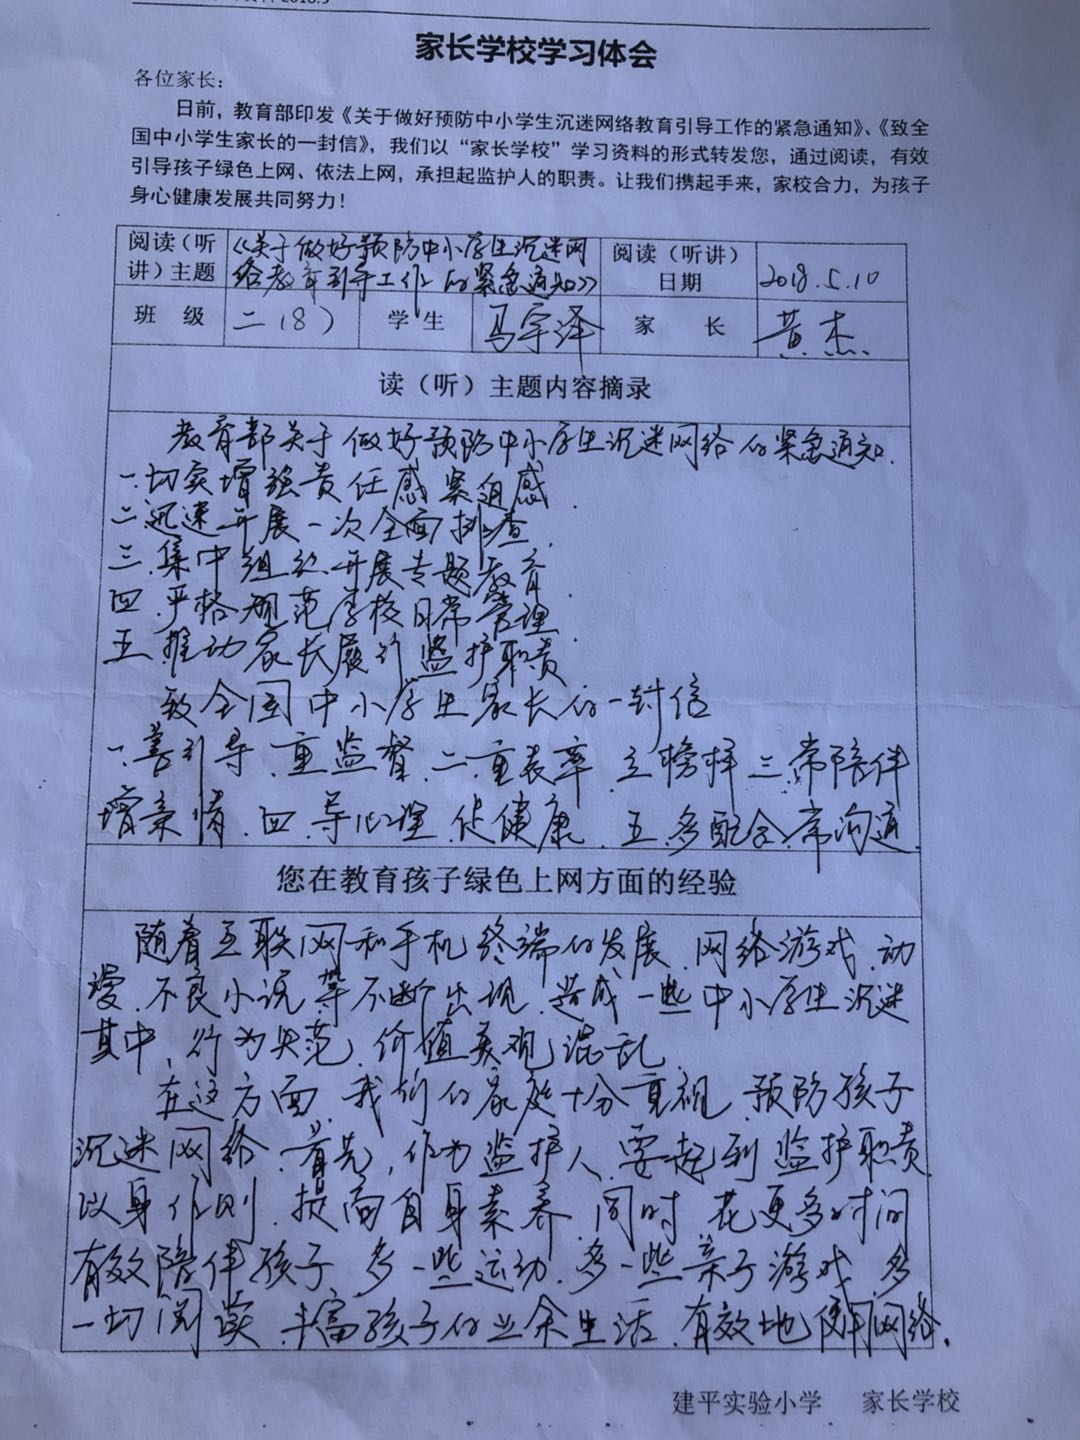 家长学校学习体会
各位家长：
日前，教育部印发《关于做好预防中小学生沉迷网络教育引导工作的紧急通知》、《致全
国中小学生家长的一封信》，我们以“家长学校”学习资料的形式转发您，通过阅读，有效
引导孩子绿色上网、依法上网，承担起监护人的职责。让我们携起手来，家校合力，为孩子
身心健康发展共同努力！
阅读（听讲）主题
《关于做好预防中小学生沉迷网
络教育引导工作的紧急通知》
阅读（听讲）日期
2018.5.10
班 级 二（8） 学 生 马宇泽 家 长 黄杰
读（听）主题内容摘录
教育部关于做好预防中小学生沉迷网络的紧急通知.
一.切实增强责任感紧迫感
二.迅速开展一次全面排查.
三.集中组织开展专题教育.
四.严格规范学校日常管理.
五.推动家长履行监护职责
致全国中小学生家长的一封信
一.善引导、重监督.二.重表率、立榜样 三.常陪伴
增亲情.四.导心理、促健康.五.多配合、常沟通.
您在教育孩子绿色上网方面的经验
随着互联网和手机终端的发展、网络游戏、动
漫、不良小说等不断出现、造成一些中小学生沉迷
其中，行为失范、价值观混乱.
在这方面、我们的家庭十分重视、预防孩子
沉迷网络.首先，作为监护人、要起到监护职责.
以身作则、提高自身素养.同时、花更多时间
有效陪伴孩子、多一些运动、多一些亲子游戏、多
一切阅读、丰富孩子的业余生活、有效地使用网络.
建平实验小学 家长学校